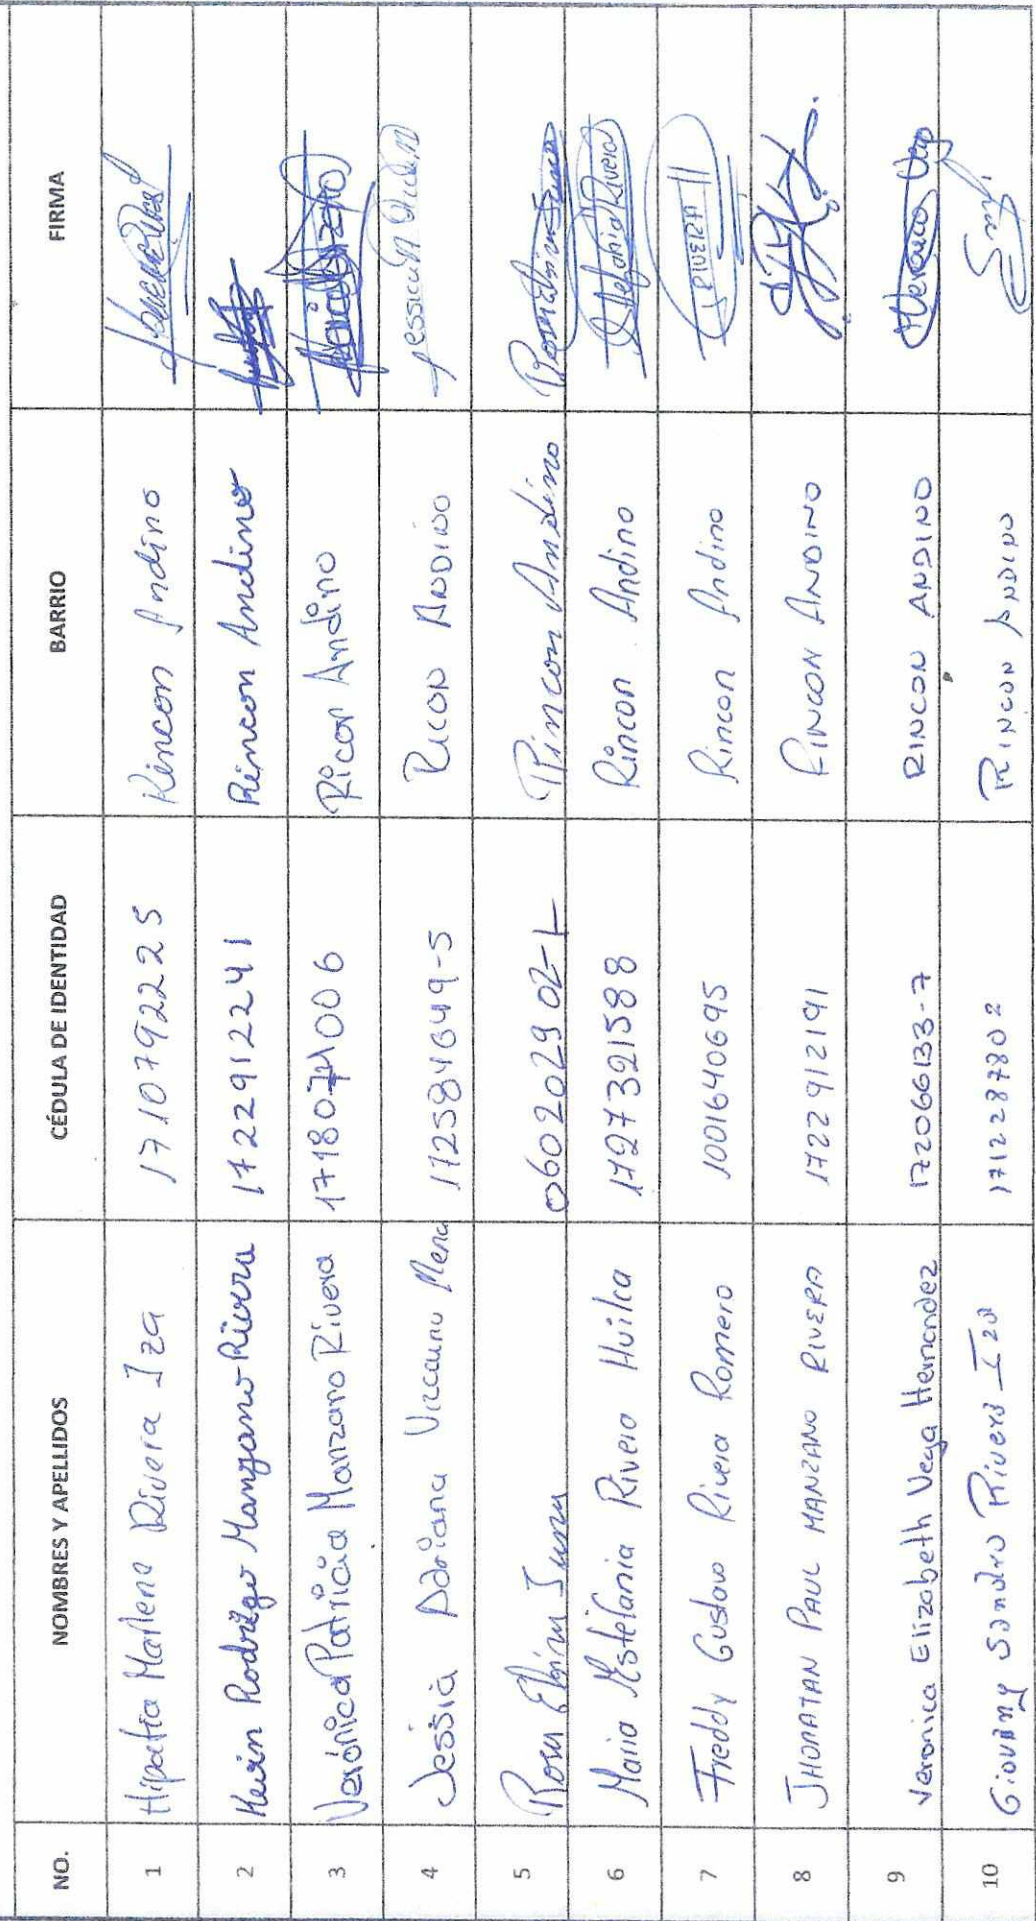 NO. NOMBRES Y APELLIDOS CÉDULA DE IDENTIDAD BARRIO FIRMA
1 Hipatia Marlene Rivera Iza 1710792225 Rincon Andino
2 Kevin Rodrigo Manzano Rivera 1722912241 Rincon Andino
3 Verónica Patricia Manzano Rivera 1718071006 Ricon Andino
4 Jessia Adriana Mena 172584649-5 Ricon Andino
5 Rosa 060202902-1 Rincon Andino
6 Maria Estefania Rivera Huilca 1727321588 Rincon Andino Estefania Rivera
7 Freddy Gustavo Rivera Romero 1001640695 Rincon Andino RIVERA
8 JHONATAN PAUL MANZANO RIVERA 1722912191 RINCON ANDINO
9 Veronica Elizabeth Vega Hernandez 172066133-7 RINCON ANDINO Veronica Vega
10 Giovany Sandro Rivera Iza 1712287802 RINCON ANDINO